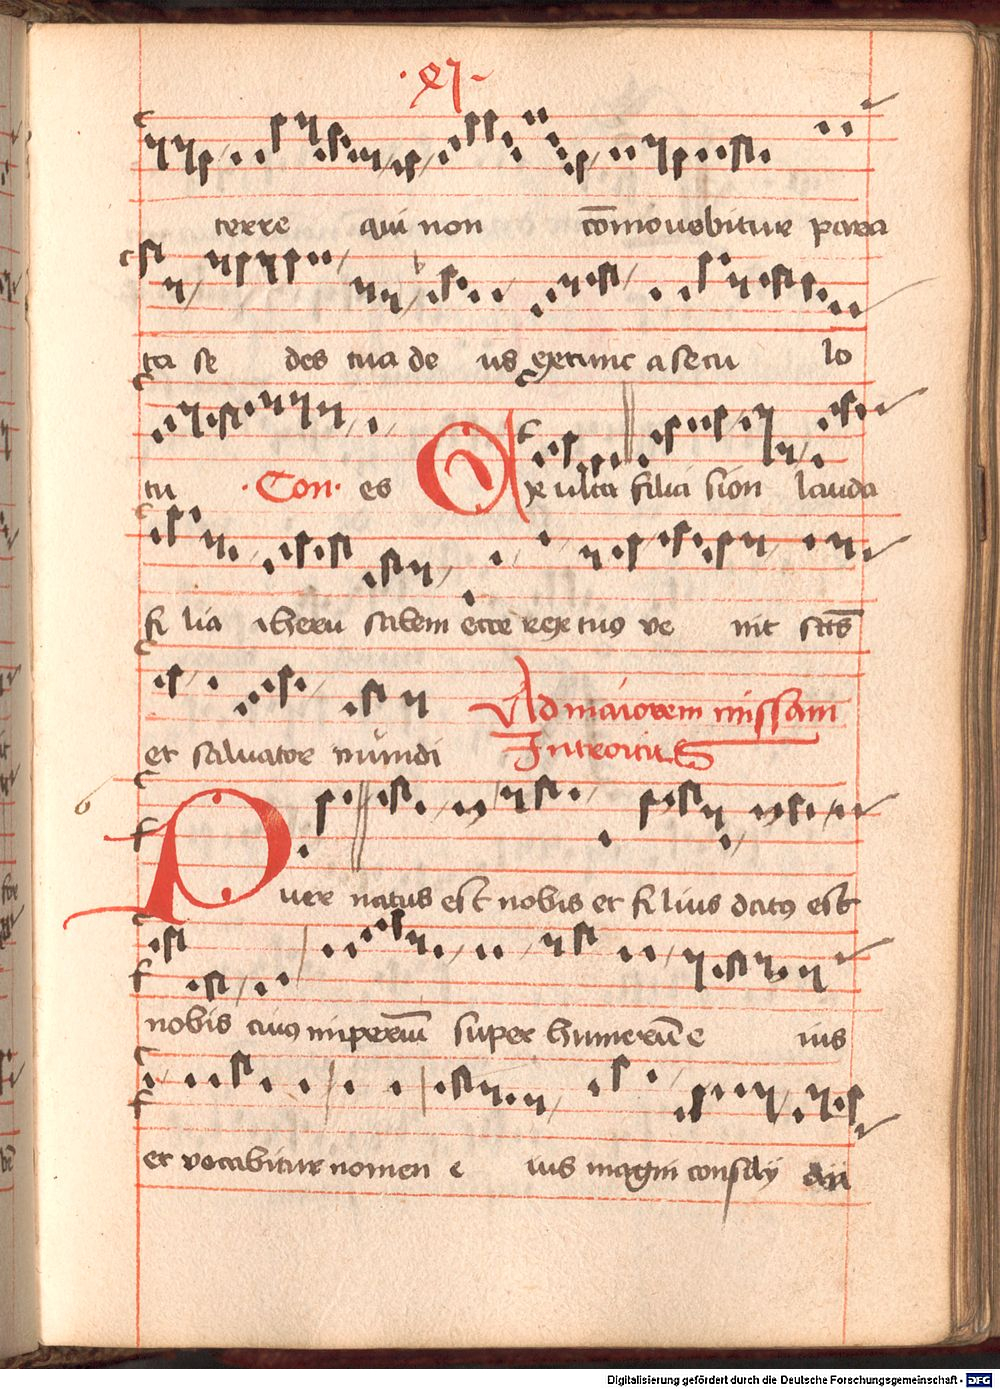 ·xj·
terre qui non com̄ouebitur para
ta se des tua de us ex tunc a secu lo
tu ·Con· es Exulta filia sion lauda
fi lia iheru salem ecce rex tuus ve nit sc̄ts
et saluator mundi Ad maiorem missam
Introitus
Puer natus est nobis et filius datus est
nobis cuius imperiū super humerū e ius
et vocabitur nomen e ius magni consilij
Digitalisierung gefördert durch die Deutsche Forschungsgemeinschaft - DFG